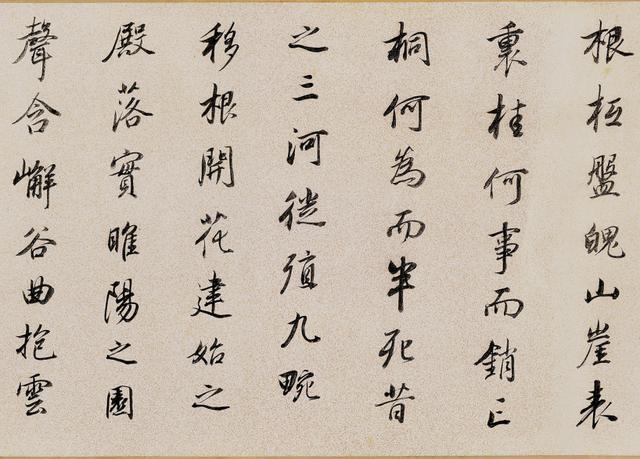 根柢盤魄山崖表
裏桂何事而銷亡
桐何為而半死昔
之三河徙殖九畹
移根開花建始之
殿落實睢陽之園
聲含嶰谷曲抱雲